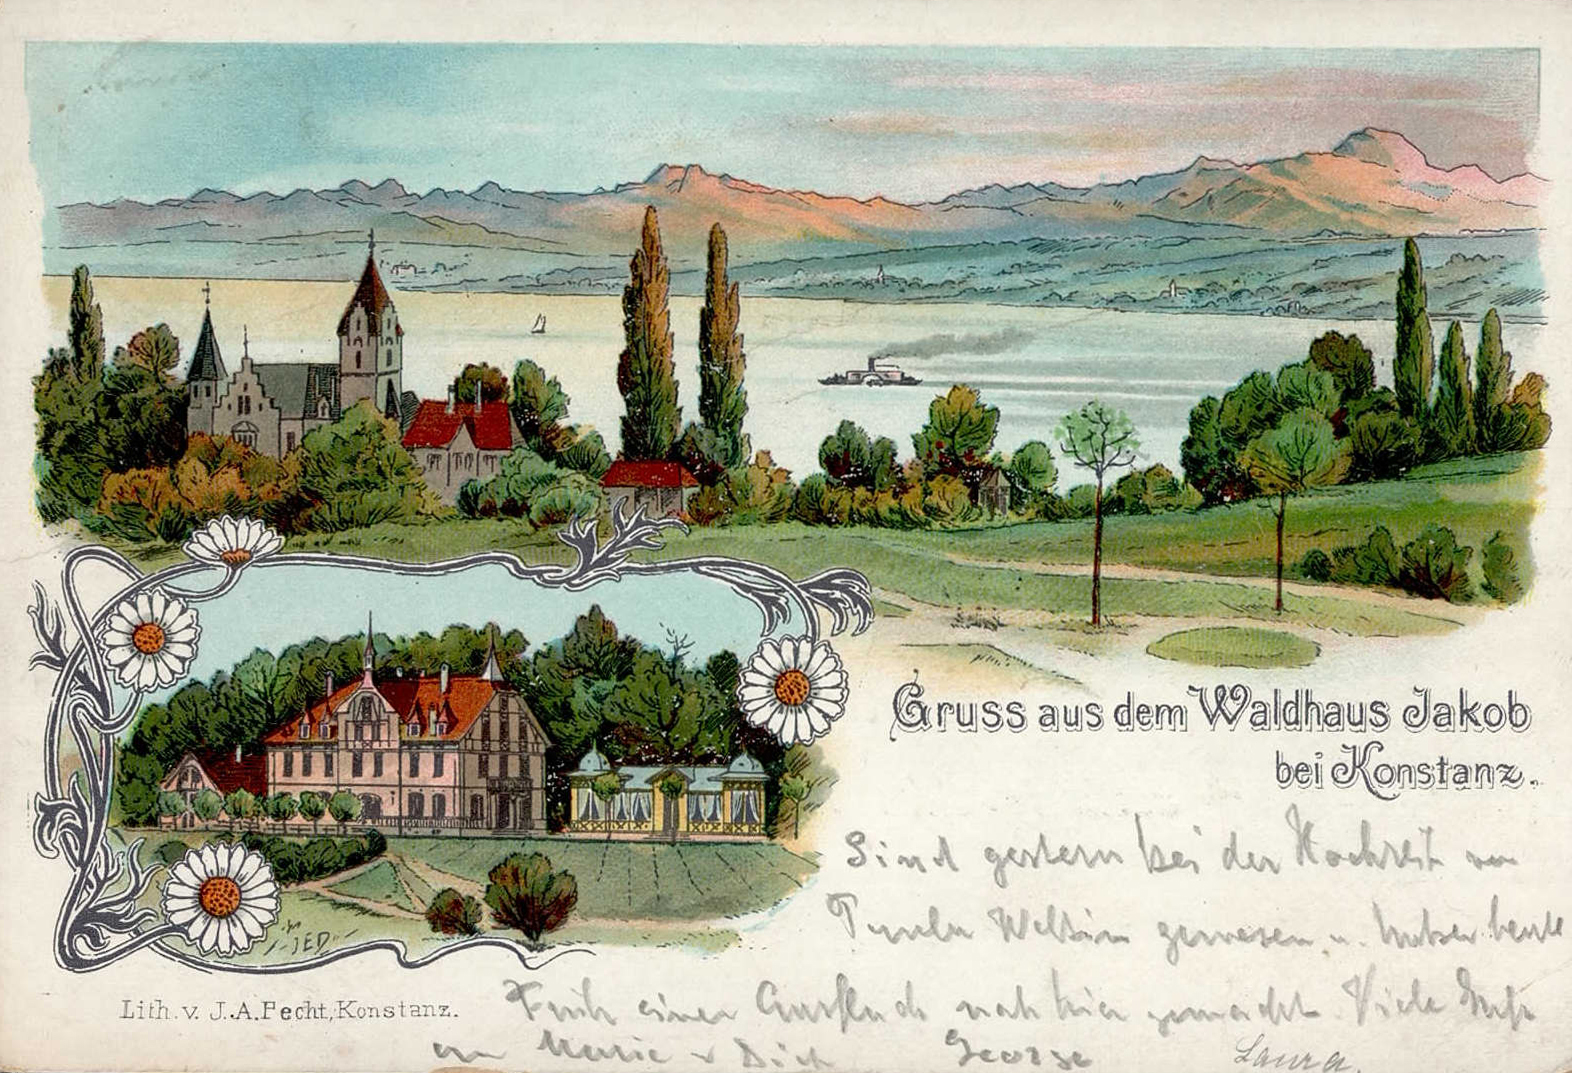 Gruss aus dem Waldhaus Jakob
bei Konstanz.
Sind gestern bei der Hochzeit von
gewesen u. haben heute
Früh einen Ausflug nach hier gemacht. Viele Grüße
an Marie u Dich George Laura.
JED
Lith. v. J. A. Pecht, Konstanz.